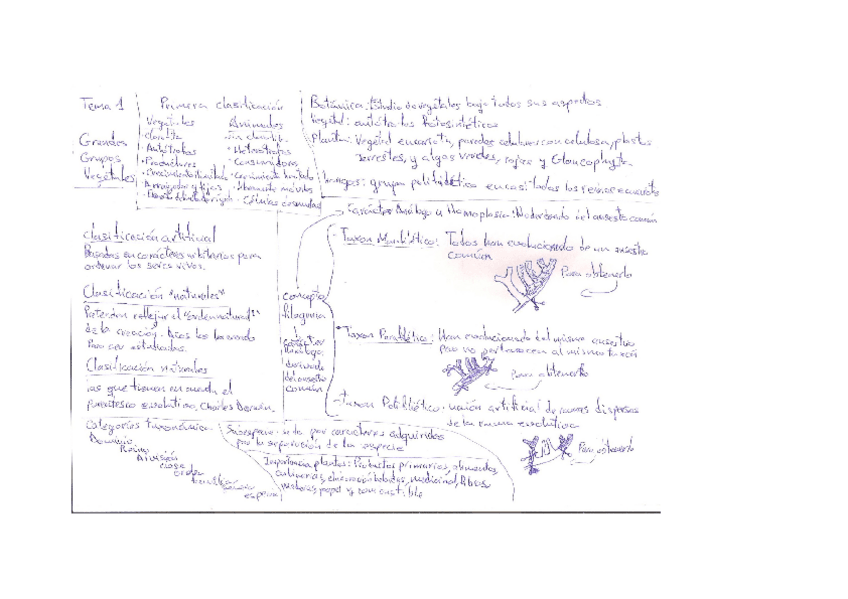 Tema 1
Grandes
Grupos
Vegetales
Primera clasificación
Vegetales
Clorofila
Autótrofos
Productores
Crecimiento ilimitado
Arraigados y fijos
Animales
sin clorofila
Heterótrofos
Consumidores
Crecimiento limitado
Libremente móviles
Células desnudas
Botánica: Estudio de vegetales bajo todos sus aspectos
Vegetal: autótrofos fotosintéticos
Planta: Vegetal eucariota, paredes celulares con celulosa, plantas
terrestres, y algas verdes, rojas y Glaucophyta
Hongos: grupo polifilético en casi todos los reinos eucariota
Carácter Análogo u Homoplasia: No derivando del ancestro común
Clasificación artificial
Basadas en caracteres arbitrarios para
ordenar los seres vivos.
Clasificación "naturales"
reflejar el "orden natural"
de la creación. Dios los ha creado
para ser estudiados.
Clasificación naturales
las que tienen en cuenta el
parentesco evolutivo. Charles Darwin.
concepto
filogenia
carácter
homólogo
derivando
del ancestro
común
Taxon Monofilético: Todos han evolucionado de un ancestro
común
Para obtenerlo
Taxon Parafilético: Han evolucionado del mismo ancestro
pero no pertenecen al mismo taxón
Para obtenerlo
Taxon Polifilético: unión artificial de ramas dispersas
de la rama evolutiva
Para obtenerlo
Categorías taxonómica
Dominio
Reino
División
clase
orden
familia
especie
Subespecie: se da por caracteres adquiridos
por la separación de la especie
Importancia plantas: Productos primarios, alimentos
culinarias, medicinal, fibras
maderas, papel y combustible